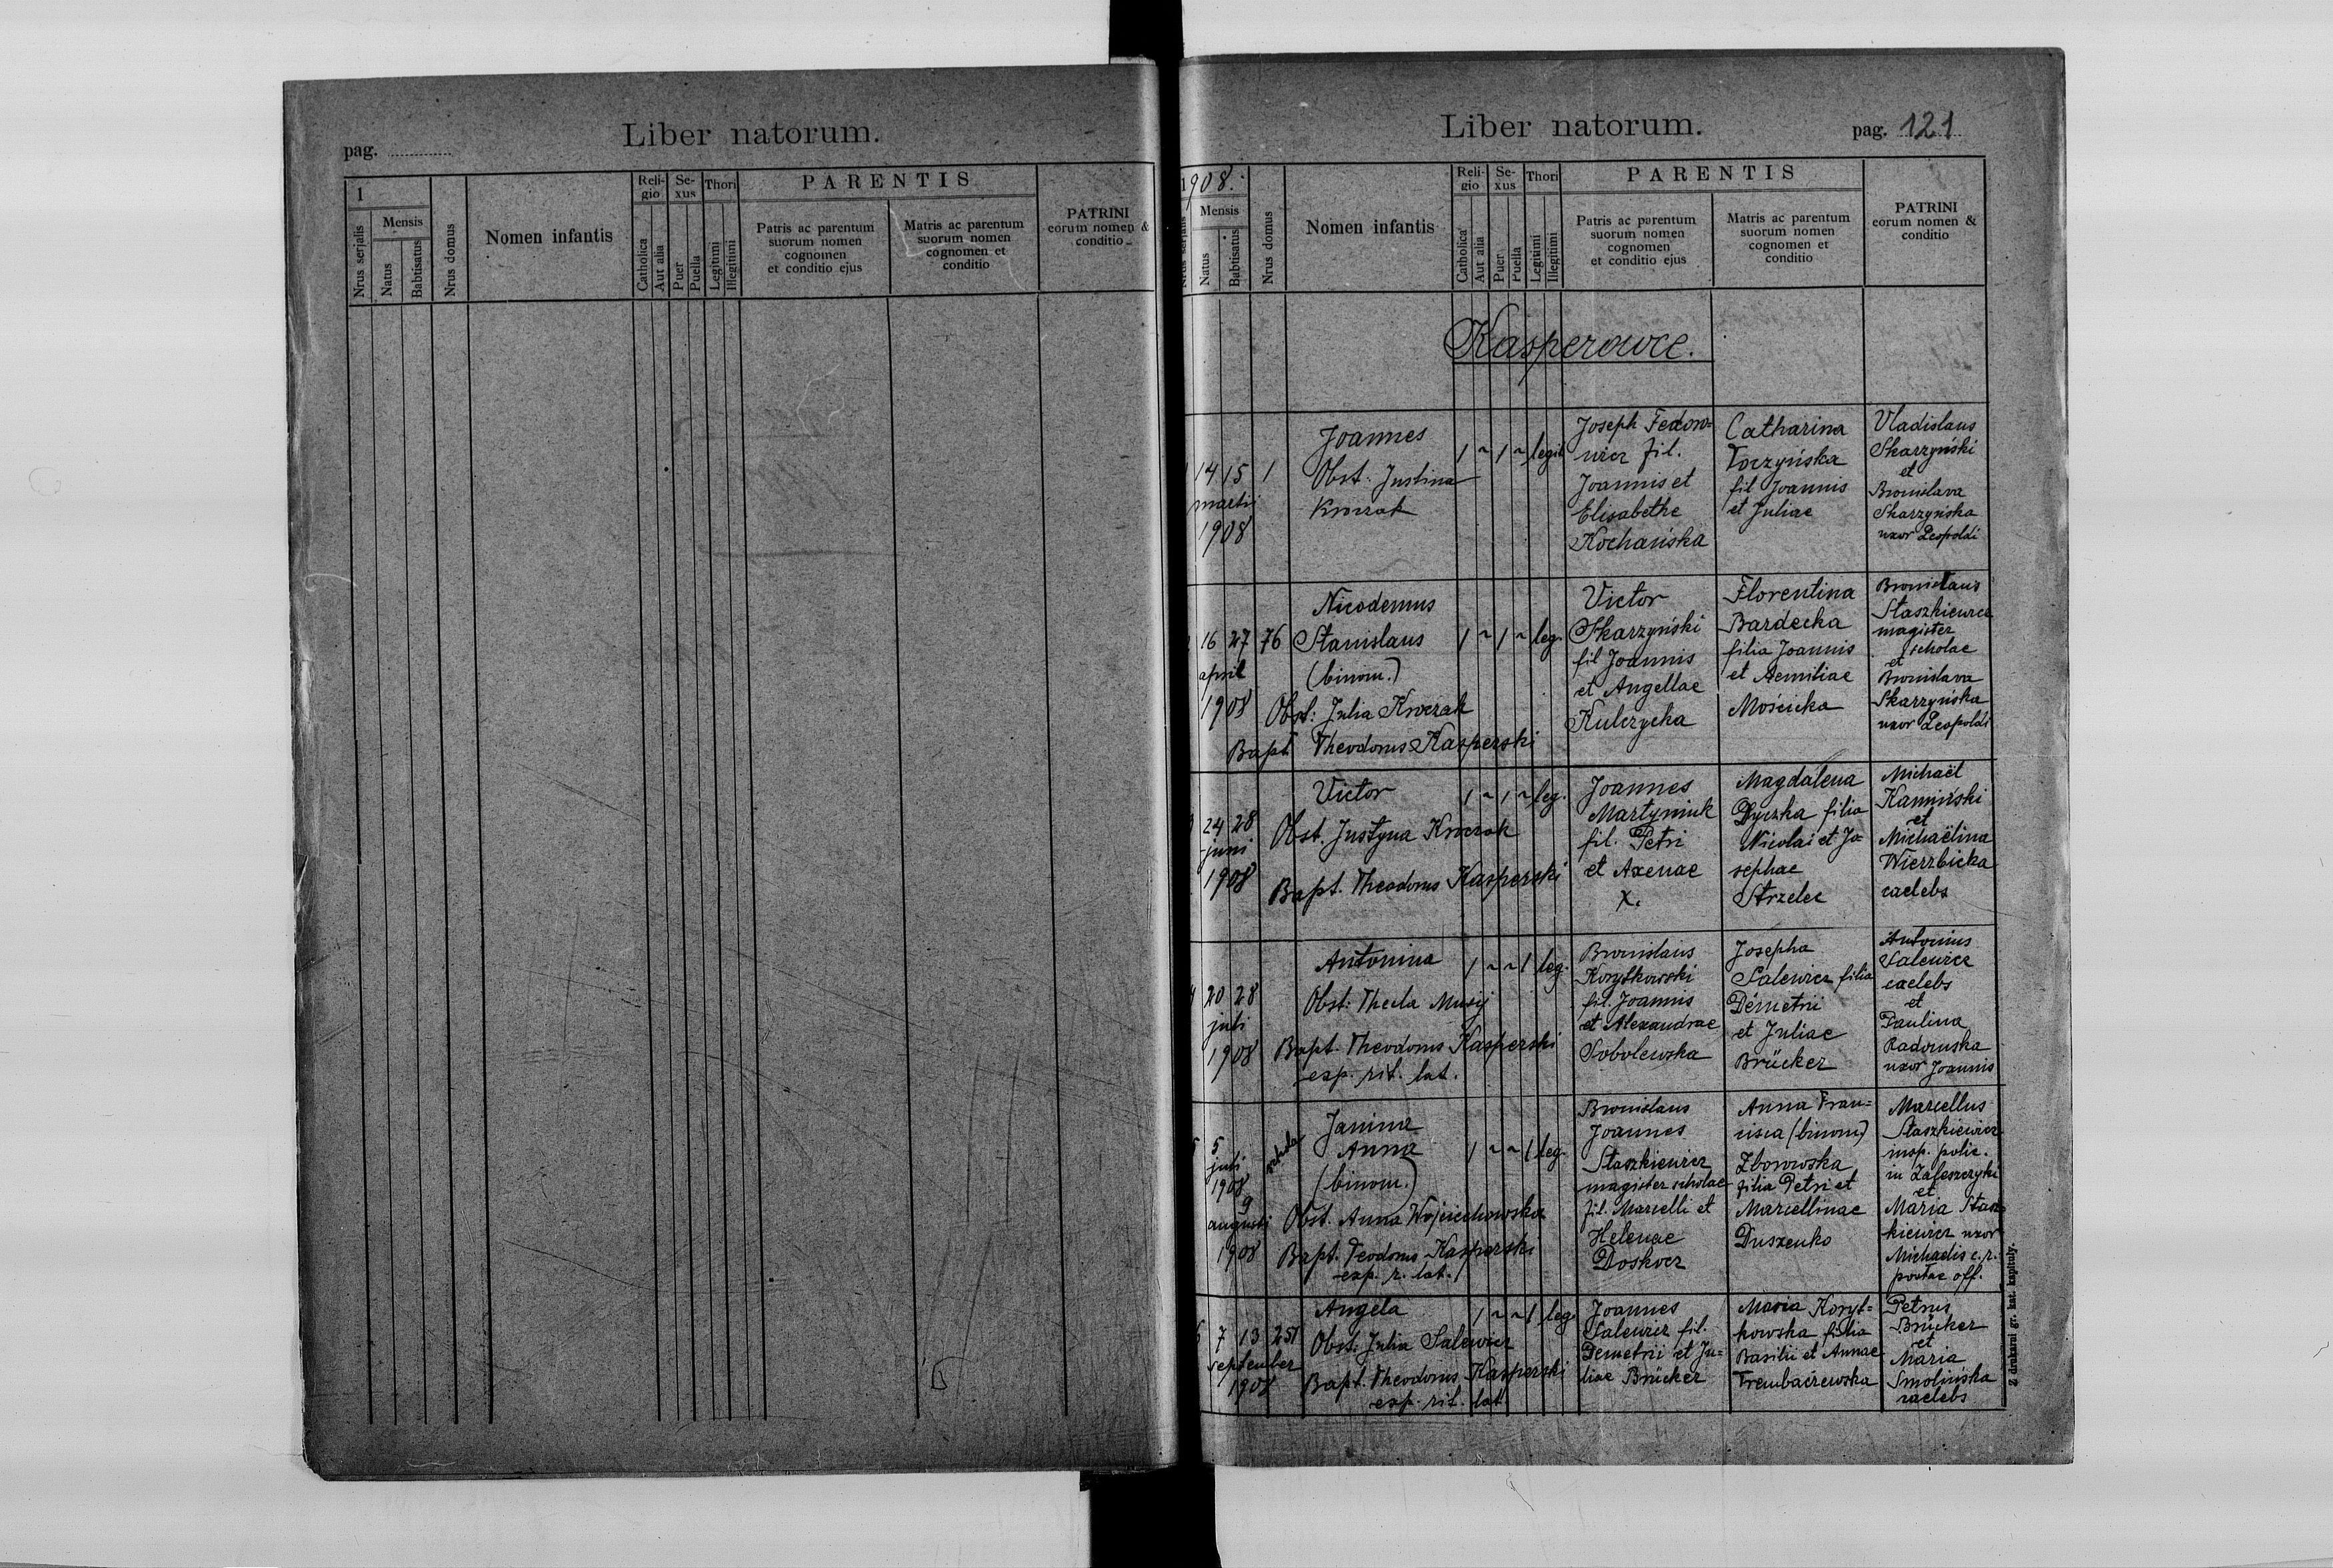 pag.
Liber natorum.
1
Nrus serjalis
Mensis
Natus
Babtisatus
Nrus domus
Nomen infantis
Reli-
gio
Catholica
Aut alia
Se-
xus
Puer
Puella
Thori
Legitimi
Illegitimi
PARENTIS
Patris ac parentum
suorum nomen
cognomen
et conditio ejus
Matris ac parentum
suorum nomen
cognomen et
conditio
PATRINI
eorum nomen &
conditio
Liber natorum.
pag. 121
1908.
Nrus serjalis
Mensis
Natus
Babtisatus
Nrus domus
Nomen infantis
Reli-
gio
Catholica
Aut alia
Se-
xus
Puer
Puella
Thori
Legitimi
Illegitimi
PARENTIS
Patris ac parentum
suorum nomen
cognomen
et conditio ejus
Matris ac parentum
suorum nomen
cognomen et
conditio
PATRINI
eorum nomen &
conditio
Kasperowce.
14 15 1
martii
1908
Joannes
Obst. Justina
Krwczak
1 ~ 1 ~ legit
Joseph Fedow=
wicz fil.
Joannis et
Elisabethe
Kochańska
Catharina
Toczyńska
fil Joannis
et Juliae
Vladislaus
Skarzyński
et
Bronislava
Skarzyńska
uxor Leopoldi
16 27 76
april
1908
Nicodemus
Stanislaus
(binom.)
Obst: Julia Krwczak
Bapt Theodorus Kasperski
1 ~ 1 ~ leg.
Victor
Skarzyński
fil Joannis
et Angellae
Kulczycka
Florentina
Bardecka
filia Joannis
et Aemiliae
Mościcka
Bronislaus
Staszkiewicz
magister
scholae
et
Bronislava
Skarzyńska
uxor Leopoldi
24 28
juni
1908
Victor
Obst. Justyna Krwczak
Bapt. Theodorus Kasperski
1 ~ 1 ~ leg.
Joannes
Martyniuk
fil. Petri
et Axenae
x.
Magdalena
Dyczka filia
Nicolai et Jo
sephae
Strzelec
Michaël
Kamiński
et
Michaëlina
Wierzbicka
caelebs
4 20 28
juli
1908
Antonina
Obst: Thecla Musij
Bapt. Theodorus Kasperski
exp. rit. lat.
1 ~ ~ 1 leg.
Bronislaus
Korytkowski
fil. Joannis
et Alexandrae
Sobolewska
Josepha
Salewicz filia
Demetrii
et Juliae
Brücker
Antonius
Salewicz
caelebs
et
Paulina
Radomska
uxor Joannis
5 5
juli
1908
9
augusti
1908
schola
Janina
Anna
(binom.)
Obst. Anna Wojciechowska
Bapt. Teodorus Kasperski
exp. r. lat.
1 ~ ~ 1 leg.
Bronislaus
Joannes
Staszkiewicz
magister scholae
fil. Marcelli et
Helenae
Doskocz
Anna Fran=
cisca (binom)
Zborowska
filia Petri et
Marcellinae
Duszenko
Marcellus
Staszkiewicz
insp. polic.
in Zaleszczyki
et
Maria Stasz
kiewicz uxor
Michaelis c. r.
postae off.
6 7 13 251
september
1908
Angela
Obst: Julia Salewicz
Bapt. Theodorus Kasperski
exp. rit. lat
1 ~ ~ 1 leg.
Joannes
Salewicz fil.
Demetrii et Ju=
liae Brücker
Maria Koryt=
kowska filia
Basilii et Annae
Trembaczewska
Petrus
Brücker
et
Maria
Smolińska
caelebs
Z drukarni gr. kat. kapituły.